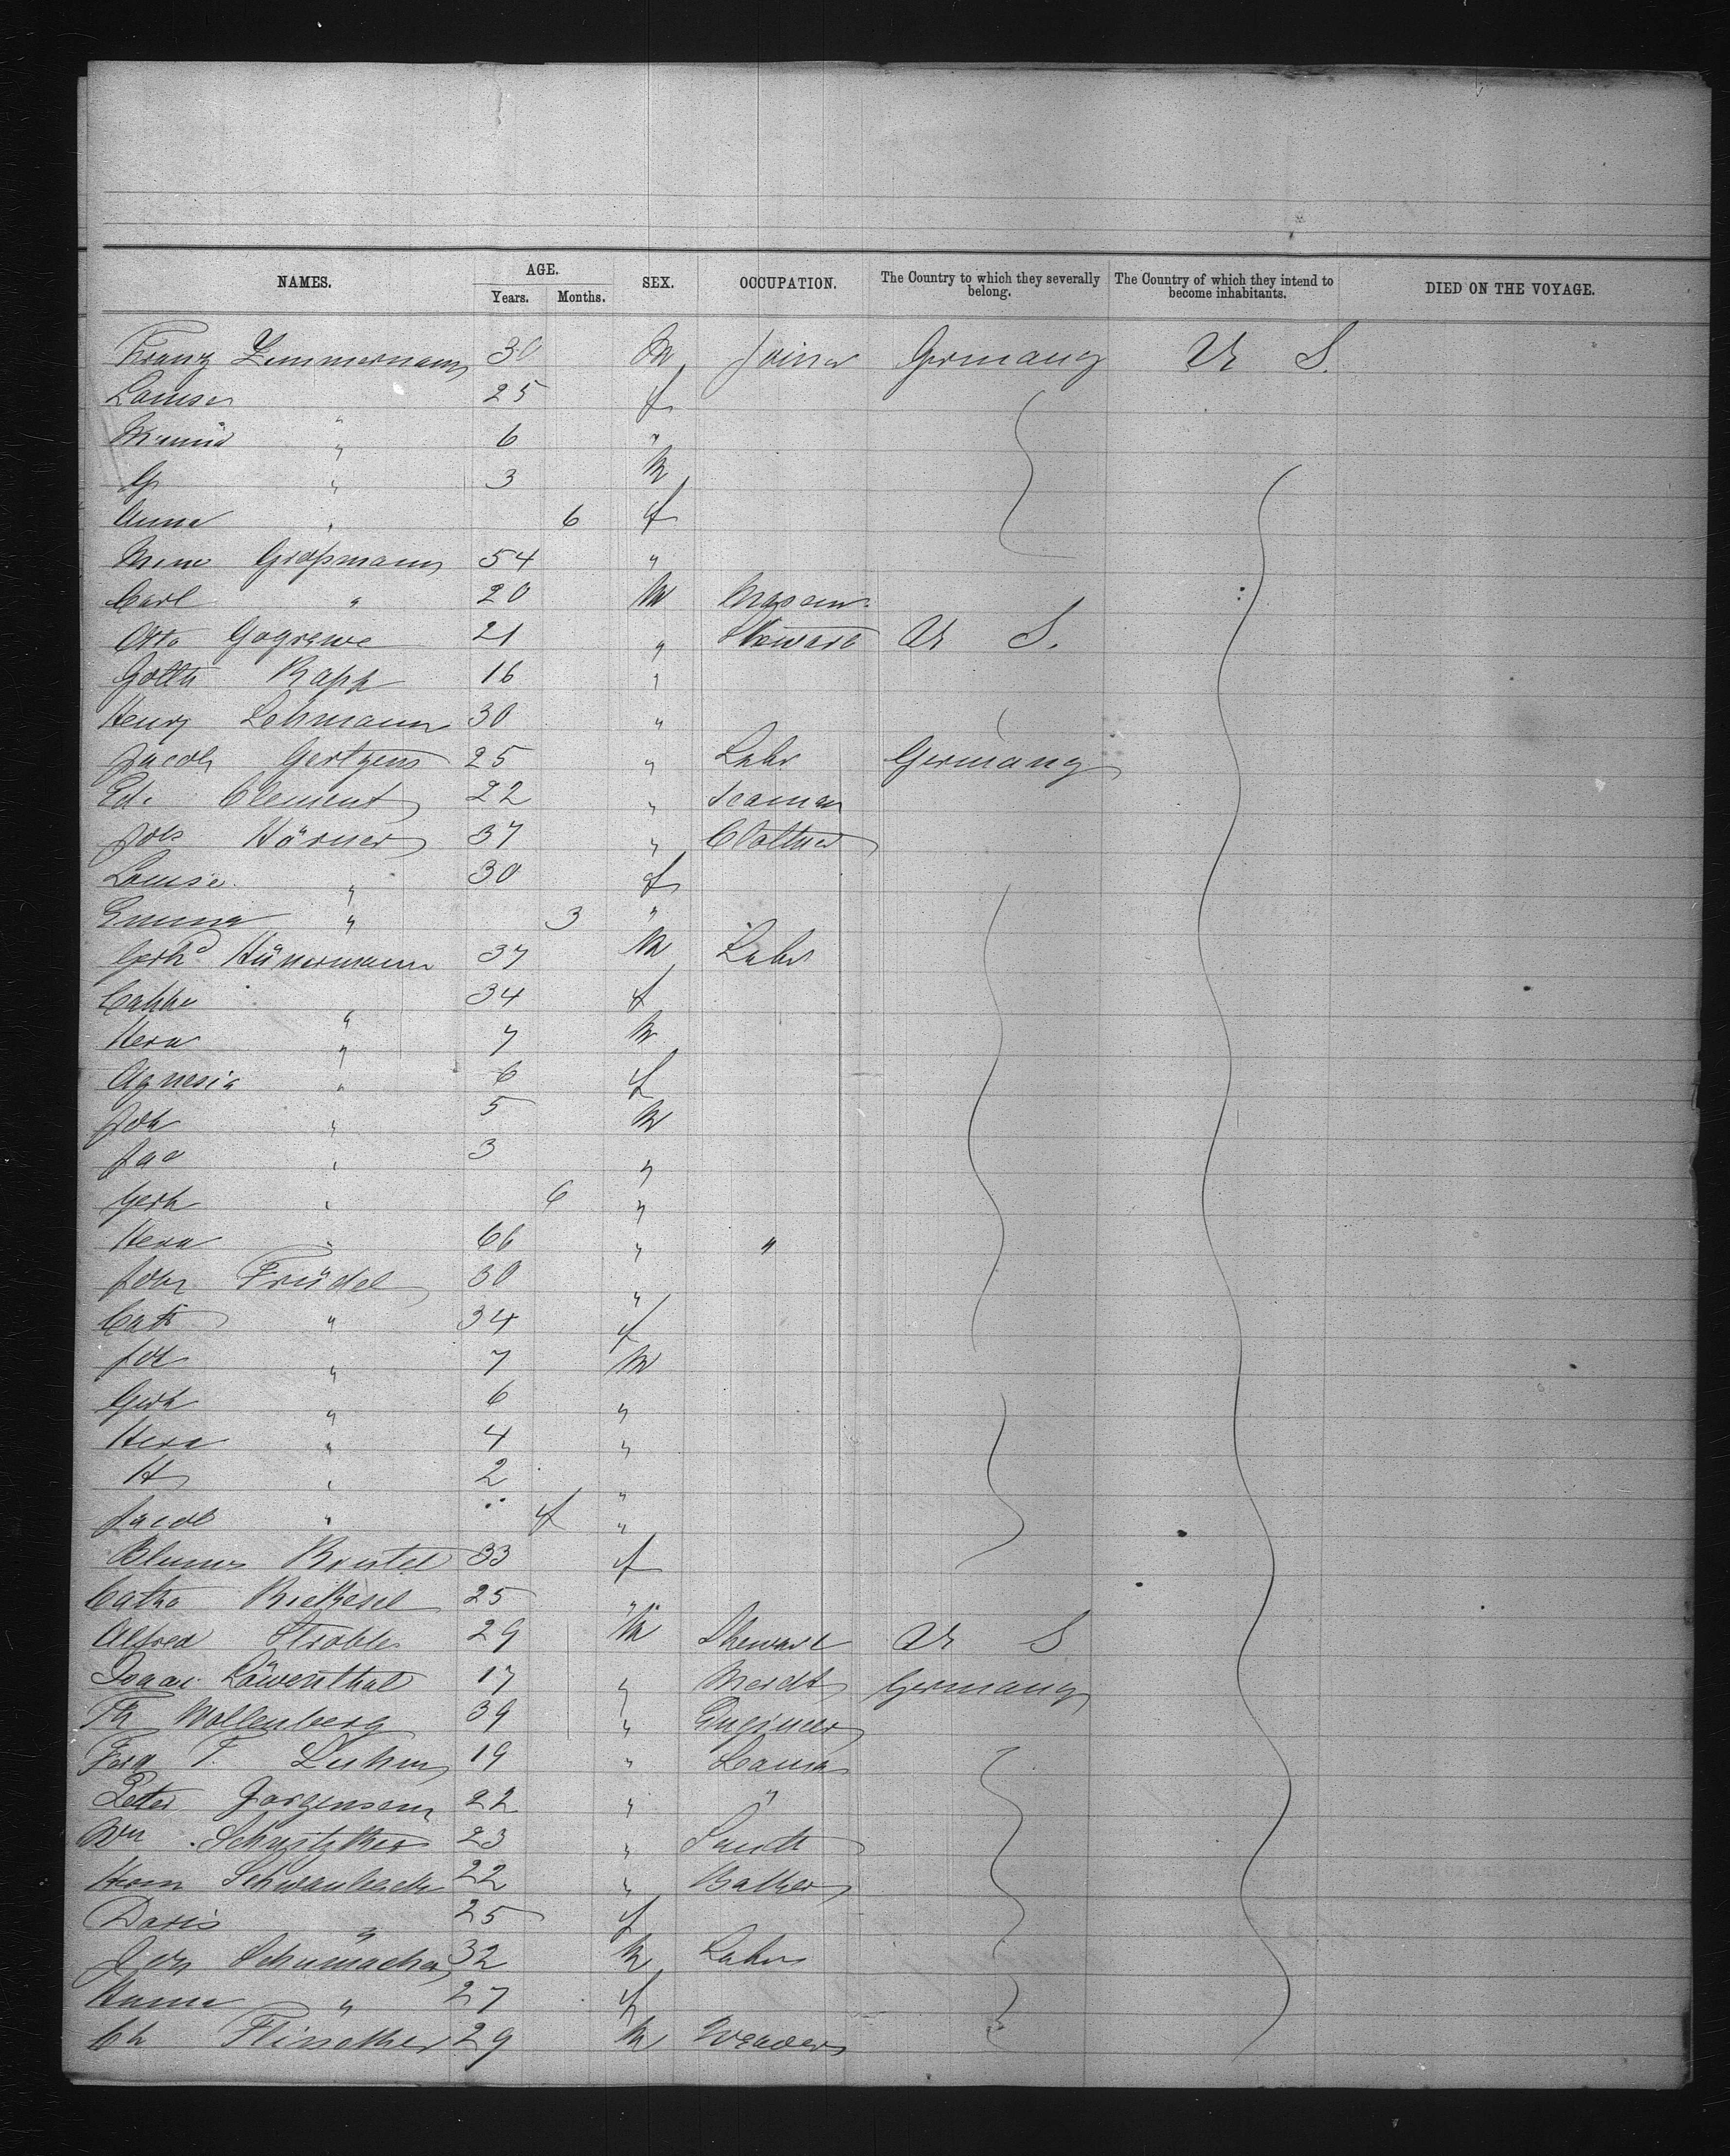 NAMES. AGE. Years. Months. SEX. OCCUPATION. The Country to which they severally belong. The Country of which they intend to become inhabitants. DIED ON THE VOYAGE.
Franz Zimmermann 30 M Joiner Germany U S.
Louise " 25 f
Minna " 6 "
G " 3 M
Anna " 6 f
Großmann 54 "
Carl " 20 M Mason
Otto Gogrewe 21 " Steward U S.
Gottl Rapp 16 "
Henry Lehmann 30 "
Jacob Gertzens 25 " Labr Germany
Ed. Clement 22 " Seaman
Joh Hörner 37 "
Louise " 30 f
Emma " 3 "
Gerhd Hünermann 37 M Labr
34 f
" 7 M
Agnesia " 6 f
Joh " 5 M
Jac " 3 "
Gerh " 6 "
" 66 " "
Joh Friedel 30 "
Cath " 34 f
Joh " 7 M
Gerh " 6 "
" 4 "
H " 2 "
Jacob " "
33 f
Catha 25 "
Alfred Stroble 29 M Steward U S
Isaac Löwenthal 17 " Mercht Germany
Th Wollenberg 39 " Engineer
Ferd T. 19 " Seaman
Peter Jorgensen 22 " "
Wm 23 " Smith
Herm Schwanbeck 22 " Baker
Doris " 25 f
Joh Schumacher 32 M Labr
Hanna " 27 f
Ch 29 M Weaver